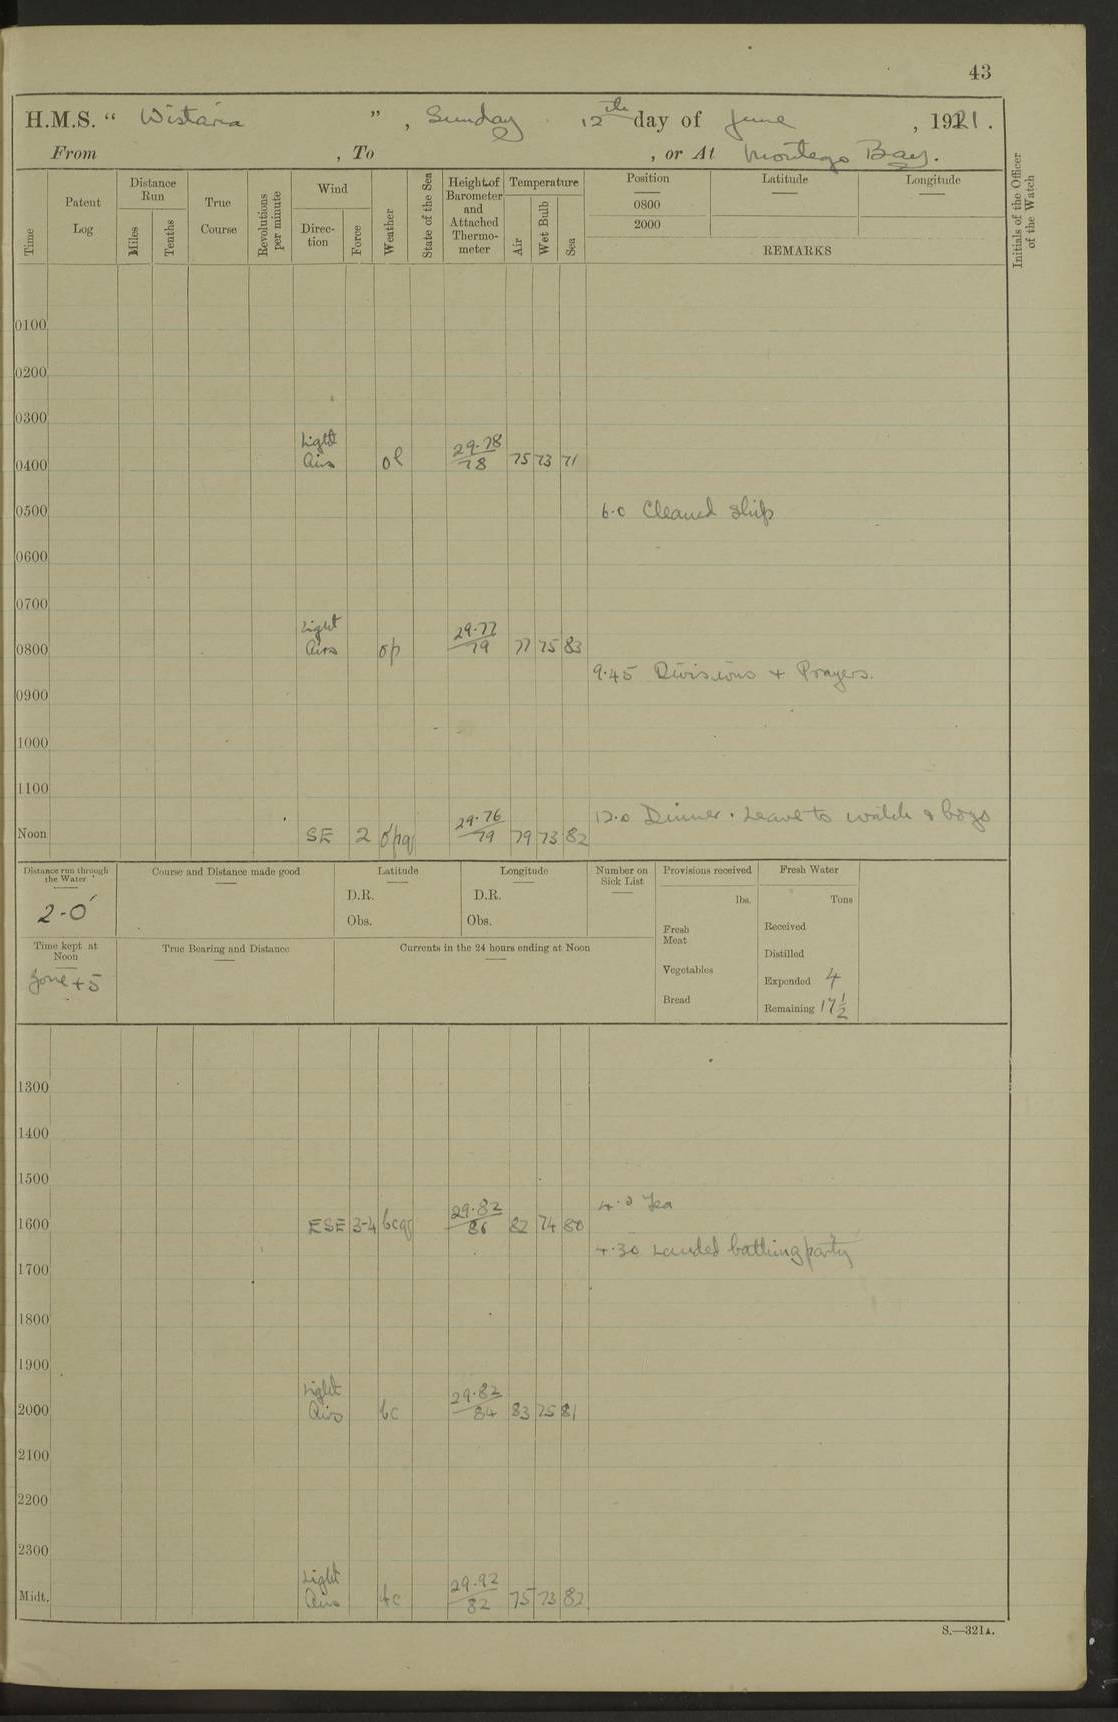 43
H.M.S. “ Wistaria ” , Sunday 12th day of June , 1921.
From , To , or At Montego Bay.
Time
Patent Log
Distance Run
Miles
Tenths
True Course
Revolutions per minute
Wind
Direc-tion
Force
Weather
State of the Sea
Height of Barometer and Attached Thermo-meter
Temperature
Air
Wet Bulb
Sea
Position
0800
2000
Latitude
Longitude
REMARKS
Initials of the Officer of the Watch
0100
0200
0300
Light
0400 Airs ol 29.78/78 75 73 71
0500 6.0 Cleaned Ship
0600
0700
Light
0800 Airs op 29.77/79 77 75 83
9.45 Divisions + Prayers.
0900
1000
1100
12.0 Dinner. Leave to watch & boys
Noon SE 2 opq 29.76/79 79 73 82
Distance run through the Water
2-0'
Course and Distance made good
Latitude
D.R.
Obs.
Longitude
D.R.
Obs.
Number on Sick List
Provisions received
lbs.
Fresh Meat
Vegetables
Bread
Fresh Water
Tons
Received
Distilled
Expended 4
Remaining 17½
Time kept at Noon
Zone +5
True Bearing and Distance
Currents in the 24 hours ending at Noon
1300
1400
1500
4.0 Tea
1600 ESE 3-4 bcq 29.82/86 82 74 80
4.30 Landed bathing party
1700
1800
1900
Light
2000 Airs bc 29.82/84 83 75 81
2100
2200
2300
Light
Midt. Airs bc 29.92/82 75 73 82
S.—321A.